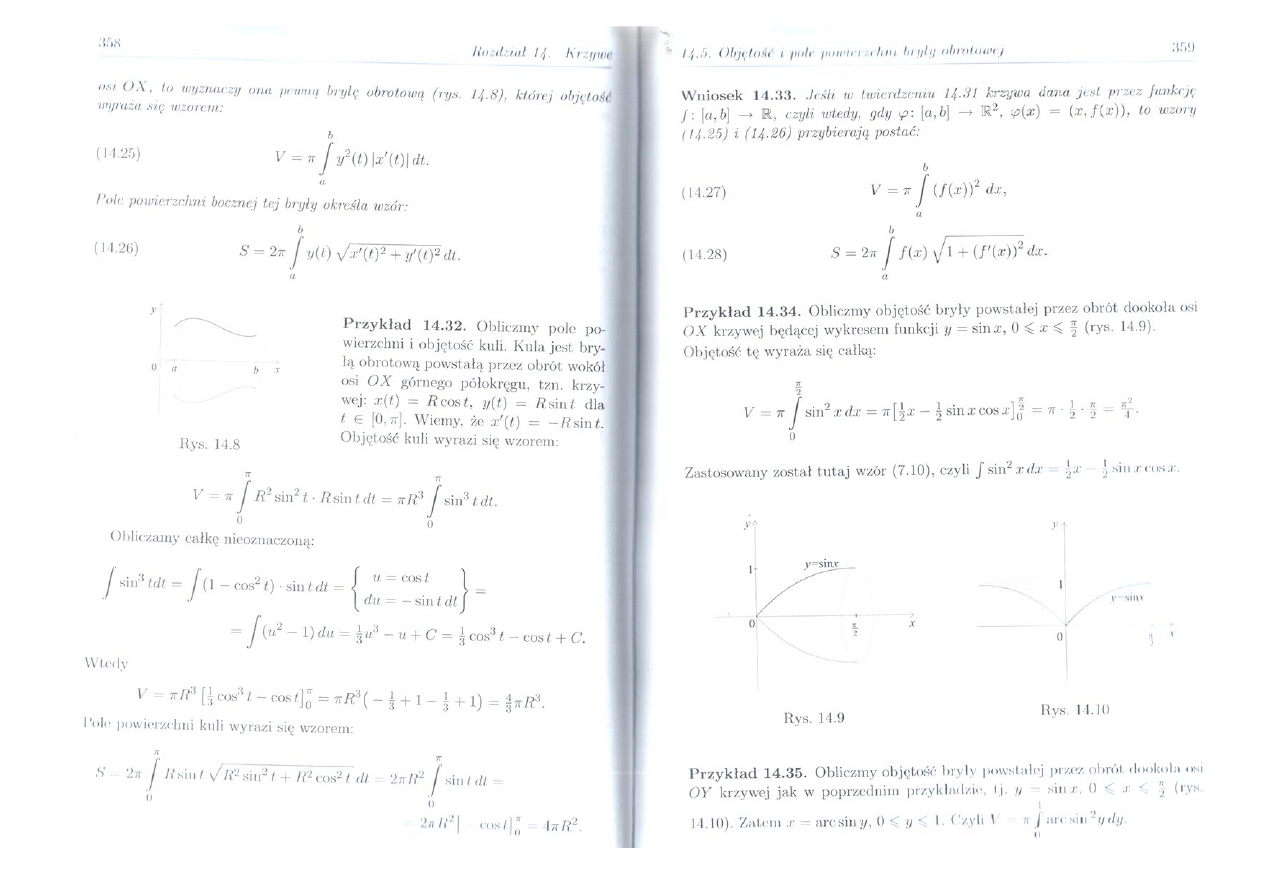 358
Rozdział 14. Krzywe
osi OX, to wyznaczy ona pewną bryłę obrotową (rys. 14.8), której objętość
wyraża się wzorem:
(14.25) V = π ∫_a^b y²(t) |x′(t)| dt.
Pole powierzchni bocznej tej bryły określa wzór:
(14.26) S = 2π ∫_a^b y(t) √(x′(t)² + y′(t)²) dt.
y
0 a b x
Rys. 14.8
Przykład 14.32. Obliczmy pole po-
wierzchni i objętość kuli. Kula jest bry-
łą obrotową powstałą przez obrót wokół
osi OX górnego półokręgu, tzn. krzy-
wej: x(t) = R cos t, y(t) = R sin t dla
t ∈ [0, π]. Wiemy, że x′(t) = −R sin t.
Objętość kuli wyrazi się wzorem:
V = π ∫_0^π R² sin² t · R sin t dt = πR³ ∫_0^π sin³ t dt.
Obliczamy całkę nieoznaczoną:
∫ sin³ t dt = ∫ (1 − cos² t) · sin t dt = { u = cos t
du = − sin t dt } =
= ∫ (u² − 1) du = ⅓u³ − u + C = ⅓ cos³ t − cos t + C.
Wtedy
V = πR³ [⅓ cos³ t − cos t]_0^π = πR³(− ⅓ + 1 − ⅓ + 1) = 4/3 πR³.
Pole powierzchni kuli wyrazi się wzorem:
S = 2π ∫_0^π R sin t √(R² sin² t + R² cos² t) dt = 2πR² ∫_0^π sin t dt =
= 2πR² [− cos t]_0^π = 4πR².
14.5. Objętość i pole powierzchni bryły obrotowej
359
Wniosek 14.33. Jeśli w twierdzeniu 14.31 krzywa dana jest przez funkcję
f: [a, b] → ℝ, czyli wtedy, gdy φ: [a, b] → ℝ², φ(x) = (x, f(x)), to wzory
(14.25) i (14.26) przybierają postać:
(14.27) V = π ∫_a^b (f(x))² dx,
(14.28) S = 2π ∫_a^b f(x) √(1 + (f′(x))²) dx.
Przykład 14.34. Obliczmy objętość bryły powstałej przez obrót dookoła osi
OX krzywej będącej wykresem funkcji y = sin x, 0 ⩽ x ⩽ π/2 (rys. 14.9).
Objętość tę wyraża się całką:
V = π ∫_0^{π/2} sin² x dx = π[½x − ½ sin x cos x]_0^{π/2} = π · ½ · π/2 = π²/4.
Zastosowany został tutaj wzór (7.10), czyli ∫ sin² x dx = ½x − ½ sin x cos x.
y
1
y=sinx
0
π/2
x
Rys. 14.9
y
1
y=sinx
0
Rys. 14.10
Przykład 14.35. Obliczmy objętość bryły powstałej przez obrót dookoła osi
OY krzywej jak w poprzednim przykładzie, tj. y = sin x, 0 ⩽ x ⩽ π/2 (rys.
14.10). Zatem x = arc sin y, 0 ⩽ y ⩽ 1. Czyli V = π ∫_0^1 arc sin² y dy.